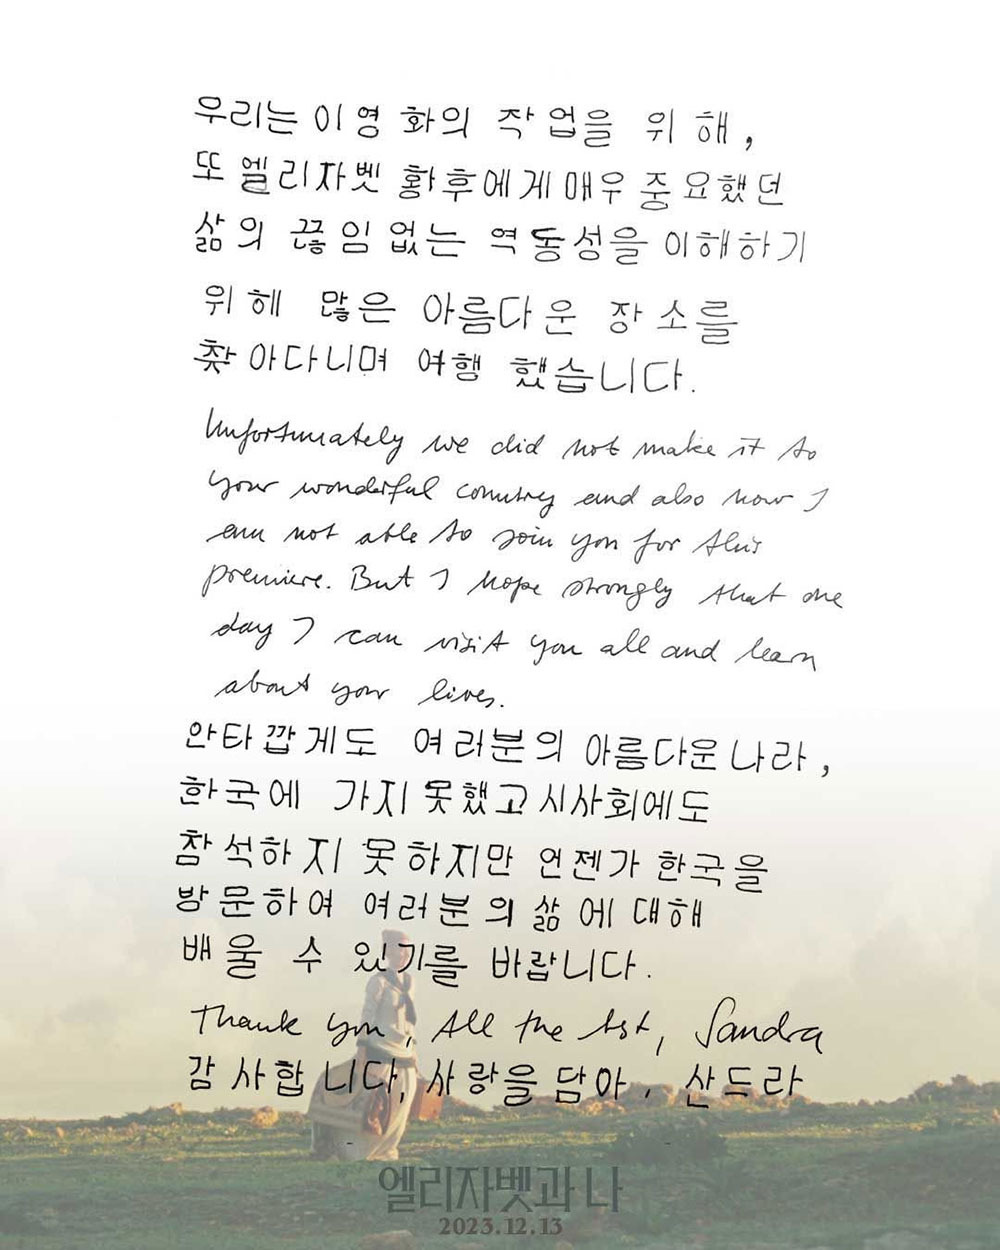 우리는 이 영화의 작업을 위해,
또 엘리자벳 황후에게 매우 중요했던
삶의 끊임없는 역동성을 이해하기
위해 많은 아름다운 장소를
찾아다니며 여행 했습니다.
Unfortunately we did not make it to
your wonderful country and also now I
am not able to join you for this
premiere. But I hope strongly that one
day I can visit you all and learn
about your lives.
안타깝게도 여러분의 아름다운 나라,
한국에 가지 못했고 시사회에도
참석하지 못하지만 언젠가 한국을
방문하여 여러분의 삶에 대해
배울 수 있기를 바랍니다.
Thank you, All the bst, Sandra
감사합니다, 사랑을 담아, 산드라
엘리자벳과 나
2023.12.13